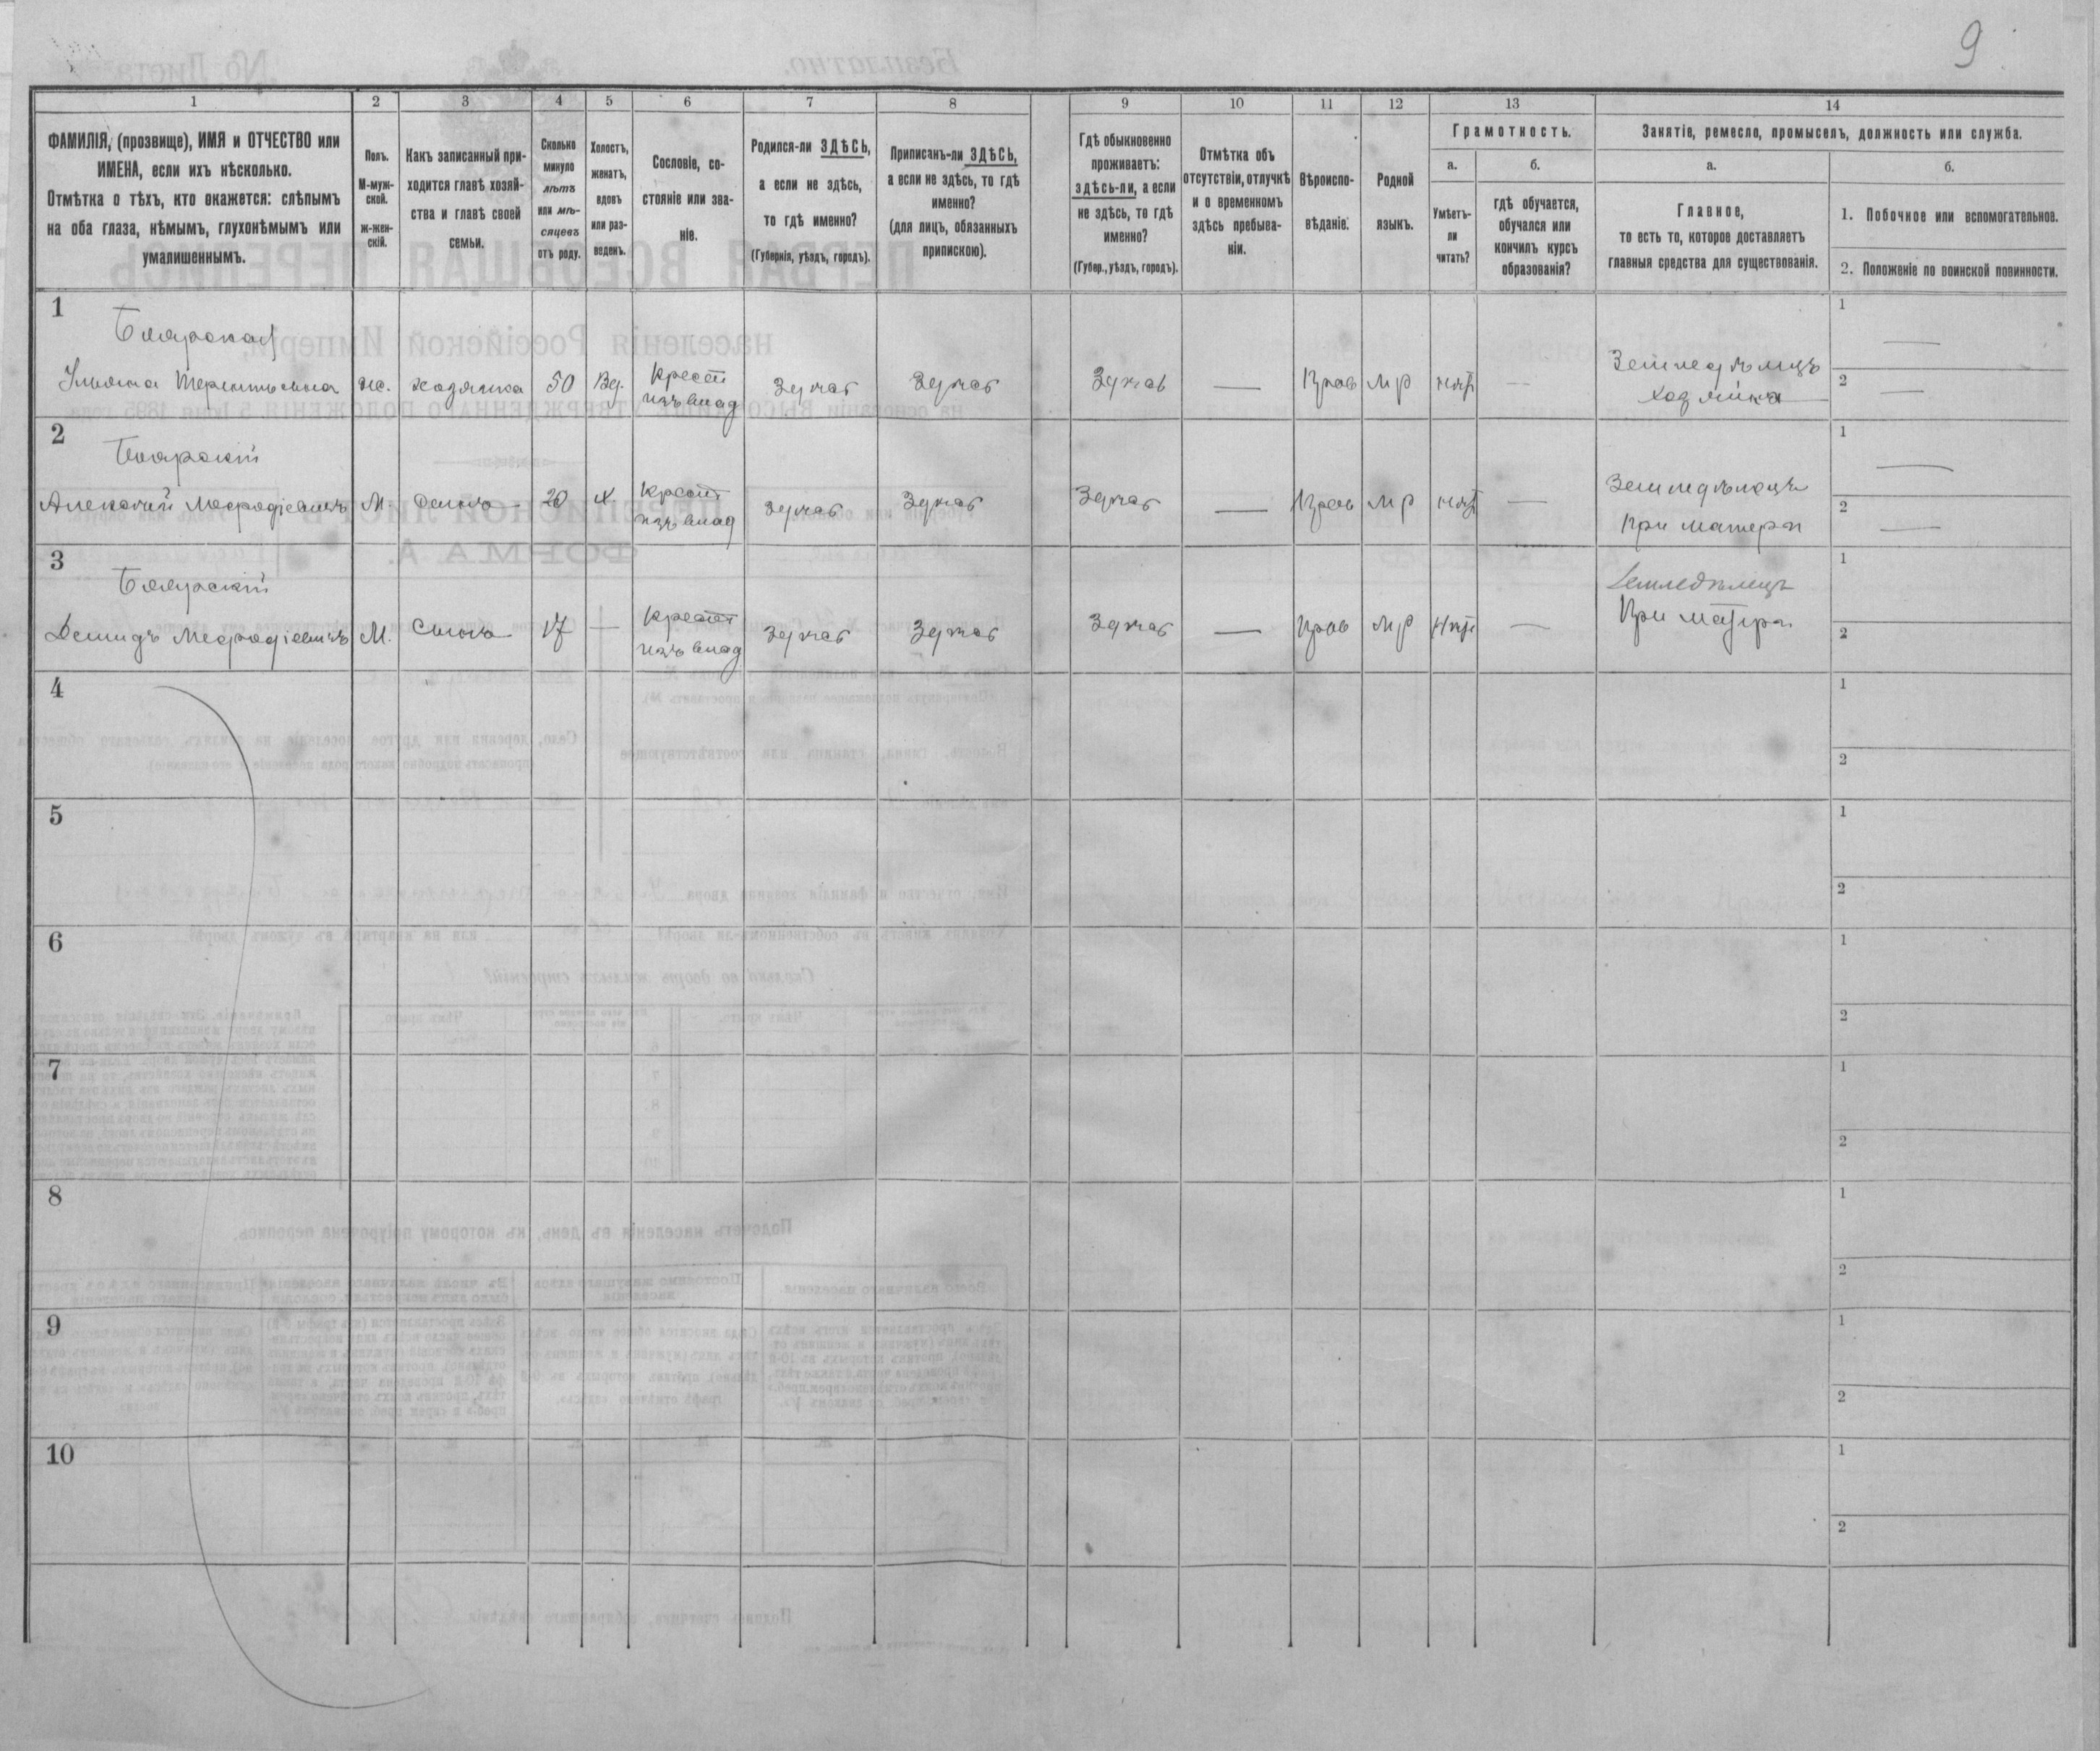 9
1 2 3 4 5 6 7 8 9 10 11 12 13 14
ФАМИЛІЯ, (прозвище), ИМЯ и ОТЧЕСТВО или
ИМЕНА, если ихъ нѣсколько.
Отмѣтка о тѣхъ, кто окажется: слѣпымъ
на оба глаза, нѣмымъ, глухонѣмымъ или
умалишеннымъ.
Полъ.
М-муж-
ской.
ж-жен-
скій.
Какъ записанный при-
ходится главѣ хозяй-
ства и главѣ своей
семьи.
Сколько
минуло
лѣтъ
или мѣ-
сяцевъ
отъ роду.
Холостъ,
женатъ,
вдовъ
или раз-
веденъ.
Сословіе, со-
стояніе или зва-
ніе.
Родился-ли ЗДѢСЬ,
а если не здѣсь,
то гдѣ именно?
(Губернія, уѣздъ, городъ).
Приписанъ-ли ЗДѢСЬ,
а если не здѣсь, то гдѣ
именно?
(для лицъ, обязанныхъ
припискою).
Гдѣ обыкновенно
проживаетъ:
здѣсь-ли, а если
не здѣсь, то гдѣ
именно?
(Губер., уѣздъ, городъ).
Отмѣтка объ
отсутствіи, отлучкѣ
и о временномъ
здѣсь пребыва-
ніи.
Вѣроиспо-
вѣданіе.
Родной
языкъ.
Грамотность.
а.
Умѣетъ-
ли
читать?
б.
гдѣ обучается,
обучался или
кончилъ курсъ
образованія?
Занятіе, ремесло, промыселъ, должность или служба.
а.
Главное,
то есть то, которое доставляетъ
главныя средства для существованія.
б.
1. Побочное или вспомогательное.
2. Положеніе по воинской повинности.
1
Боярская
Ульяна Терентьевна ж. хозяйка 50 Вд. крест изъ влад здѣсь здѣсь здѣсь — Прав м р нѣт —
Земледѣлецъ
хозяйка
1 —
2 —
2
Боярскій
Алексѣй Мефодіевичъ М. Сынъ 20 х. крест изъ влад здѣсь здѣсь здѣсь — Прав м р нѣт —
Земледѣлецъ
При матери
1 —
2 —
3
Боярскій
Демидъ Мефодіевичъ М. Сынъ 17 — крест изъ влад здѣсь здѣсь здѣсь — Прав м р нѣт —
Земледѣлецъ
При матери
1
2
4
1
2
5
1
2
6
1
2
7
1
2
8
1
2
9
1
2
10
1
2